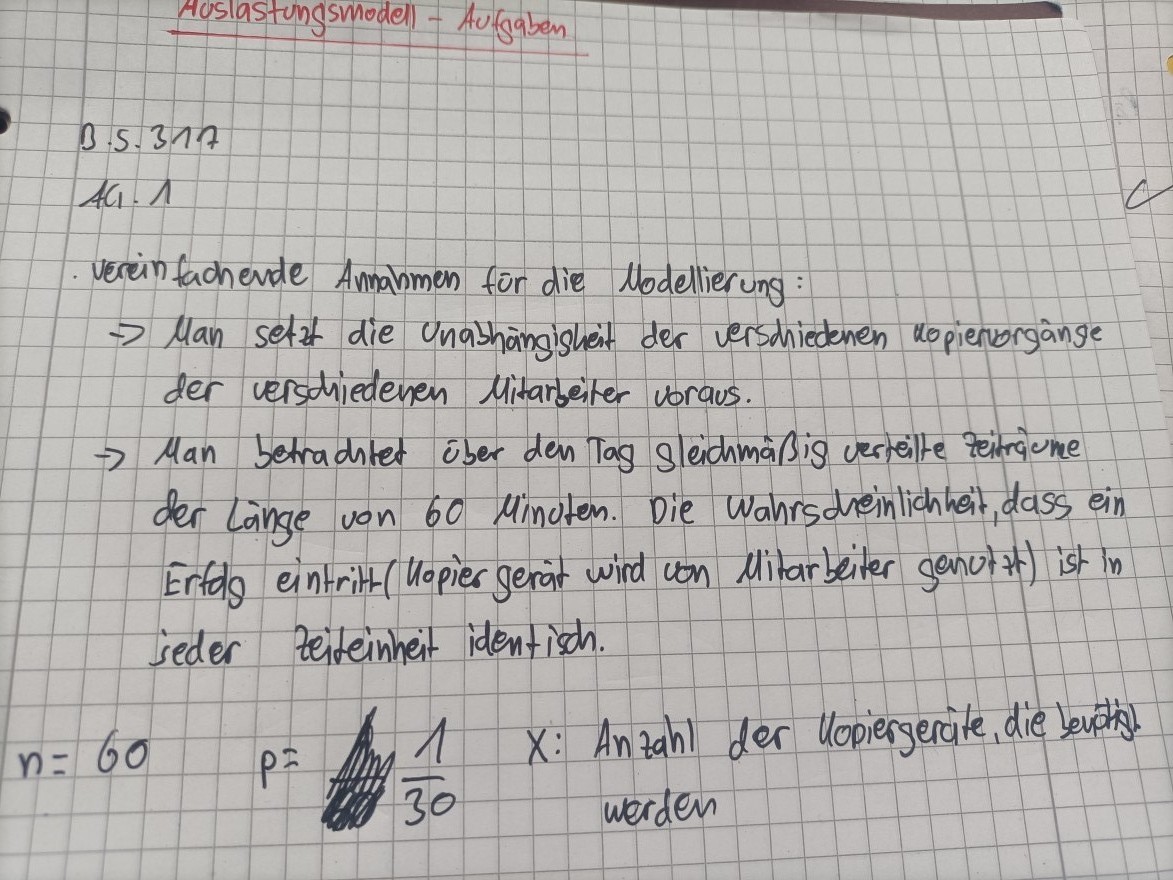 Auslastungsmodell - Aufgaben
B.S. 317
AG. 1
. vereinfachende Annahmen für die Modellierung:
=> Man setzt die Unabhängigkeit der verschiedenen Kopiervorgänge
der verschiedenen Mitarbeiter voraus.
-> Man betrachtet über den Tag gleichmäßig verteilte Zeiträume
der Länge von 60 Minuten. Die Wahrscheinlichkeit, dass ein
Erfolg eintritt (Kopiergerät wird von Mitarbeiter genutzt) ist in
jeder Zeiteinheit identisch.
n = 60 p = 1/30 X: Anzahl der Kopiergeräte, die benötigt
werden